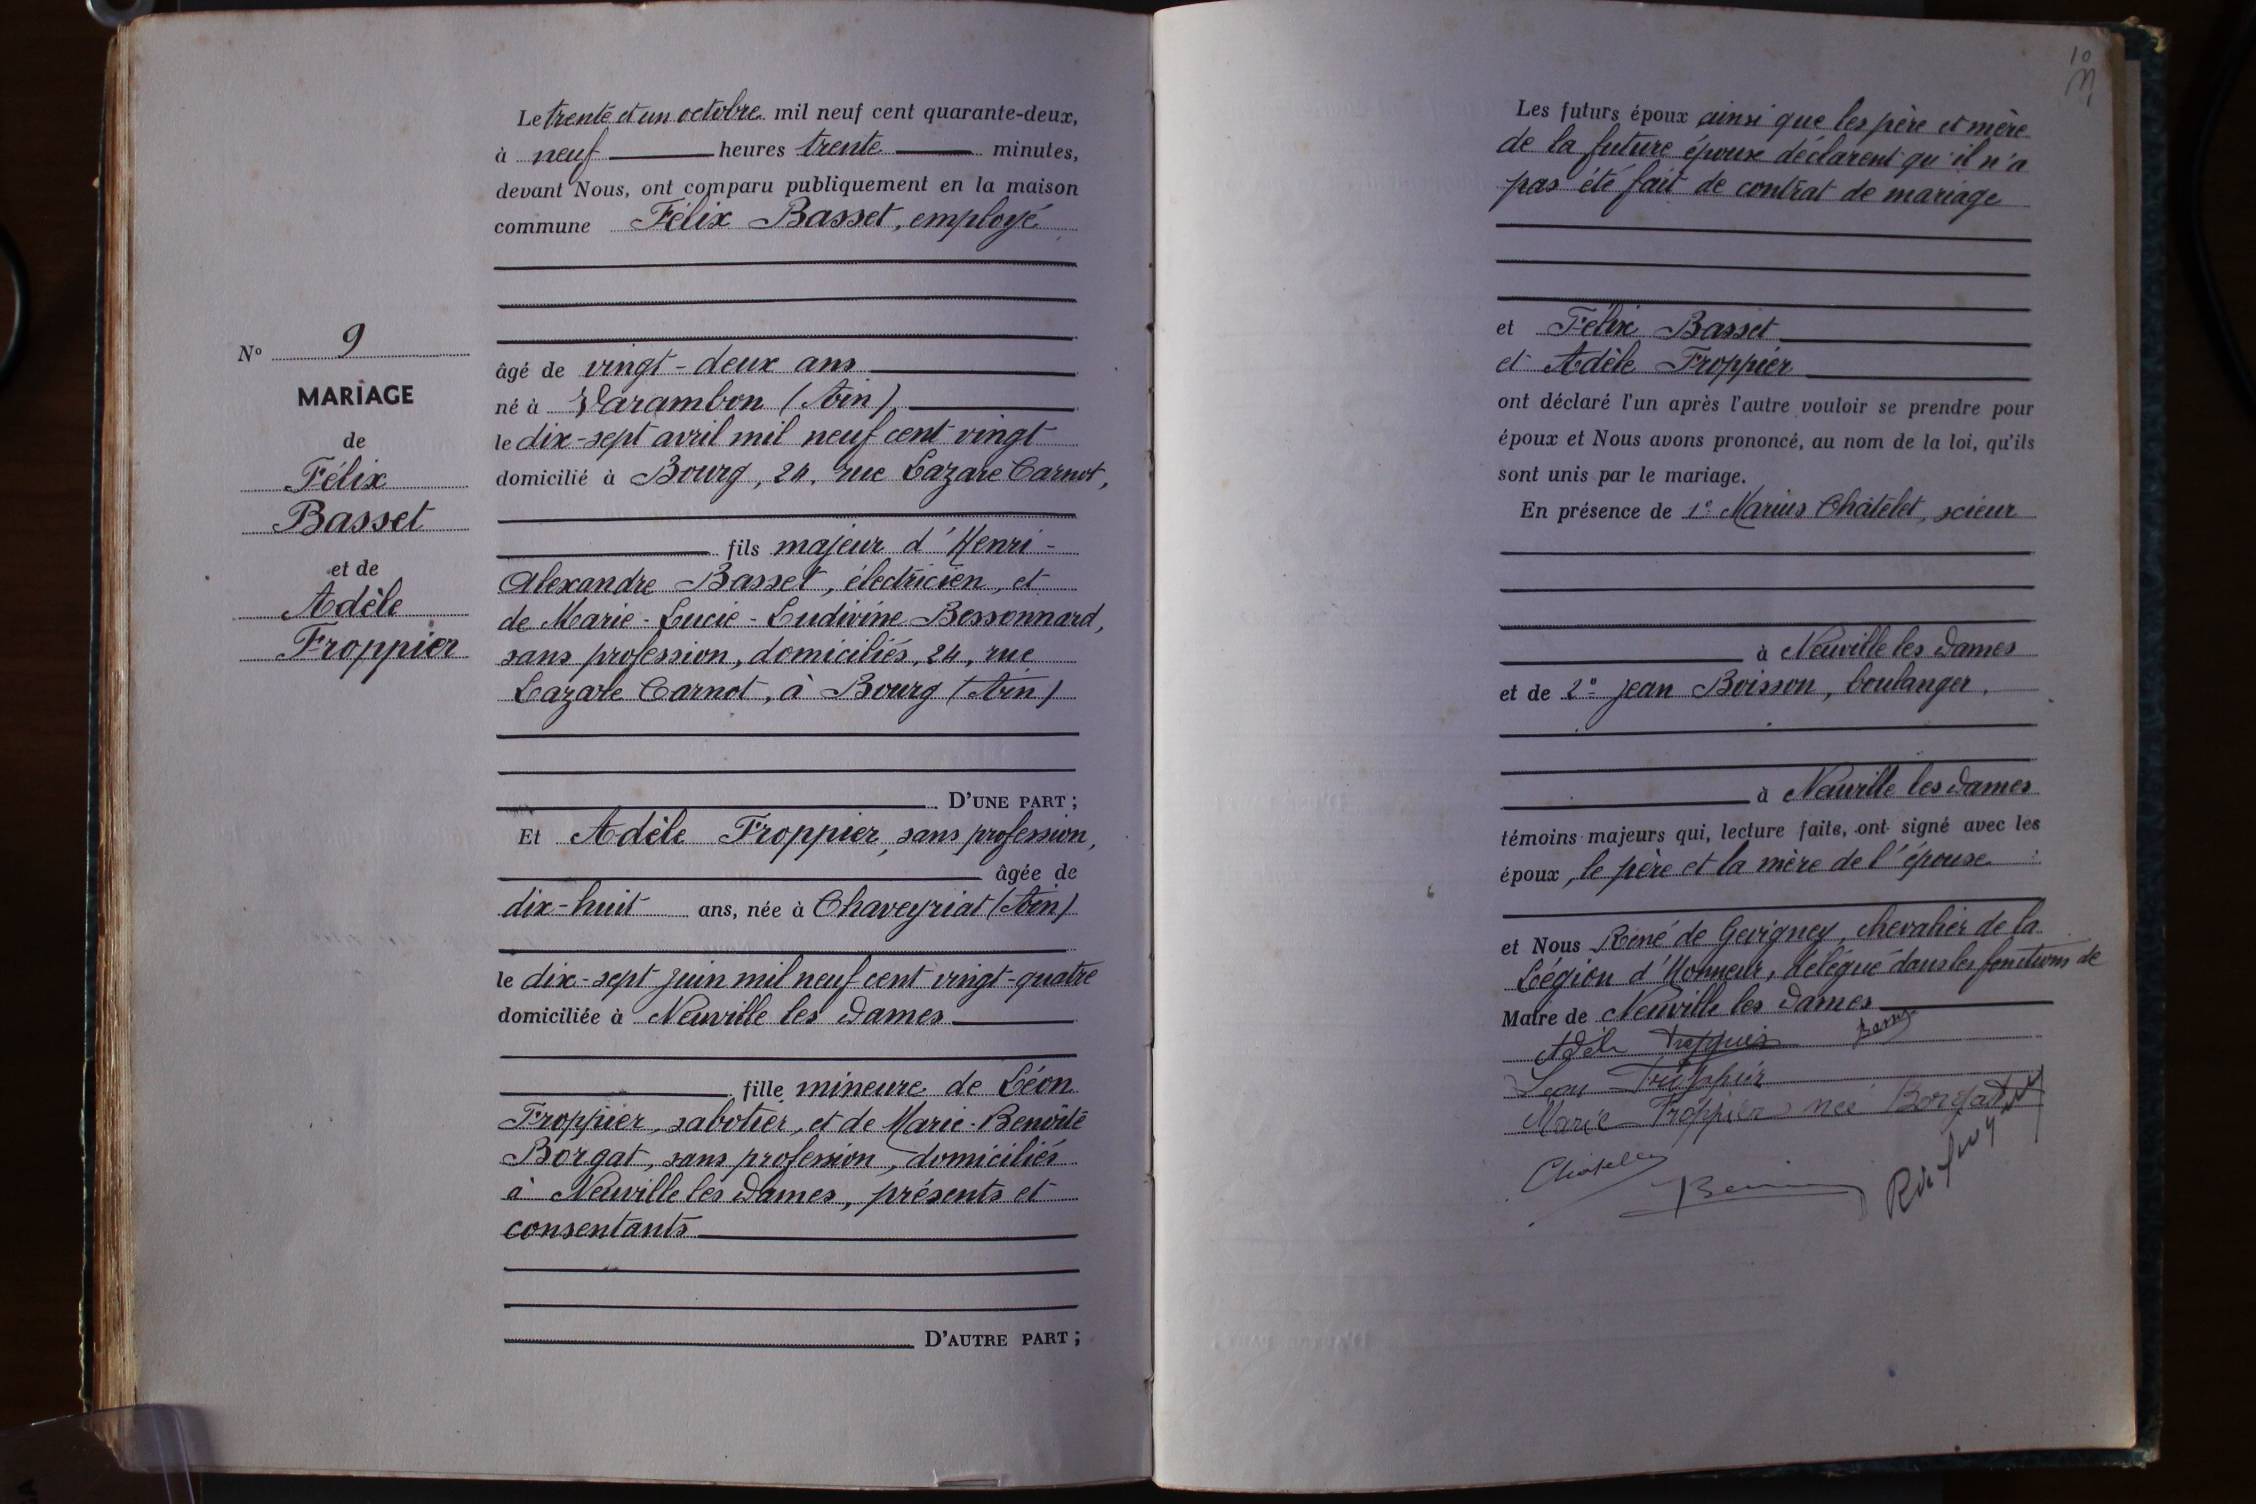 N° 9
MARIAGE
de
Félix
Basset
et de
Adèle
Froppier
Le trente et un octobre mil neuf cent quarante-deux,
à neuf heures trente minutes,
devant Nous, ont comparu publiquement en la maison
commune Félix Basset, employé
âgé de vingt-deux ans
né à Varambon (Ain)
le dix-sept avril mil neuf cent vingt
domicilié à Bourg, 24, rue Lazare Carnot,
fils majeur d'Henri-
Alexandre Basset, électricien, et
de Marie-Lucie-Ludivine Bessonnard,
sans profession, domiciliés, 24, rue
Lazare Carnot, à Bourg (Ain)
D'UNE PART ;
Et Adèle Froppier, sans profession,
âgée de
dix-huit ans, née à Chaveyriat (Ain)
le dix-sept juin mil neuf cent vingt-quatre
domiciliée à Neuville les Dames
fille mineure de Léon
Froppier, sabotier, et de Marie-Benoîte
Borgat, sans profession, domiciliés
à Neuville les Dames, présents et
consentants
D'AUTRE PART ;
10
Les futurs époux ainsi que les père et mère
de la future épouse déclarent qu'il n'a
pas été fait de contrat de mariage
et Félix Basset
et Adèle Froppier
ont déclaré l'un après l'autre vouloir se prendre pour
époux et Nous avons prononcé, au nom de la loi, qu'ils
sont unis par le mariage.
En présence de 1° Marius Châtelet, scieur
à Neuville les Dames
et de 2° Jean Boisson, boulanger,
à Neuville les Dames
témoins majeurs qui, lecture faite, ont signé avec les
époux, le père et la mère de l'épouse
et Nous René de Gevigney, chevalier de la
Légion d'Honneur, délégué dans les fonctions de
Maire de Neuville les Dames
Adèle Froppier Basset
Léon Froppier
Marie Froppier née Borgat
Chatelet